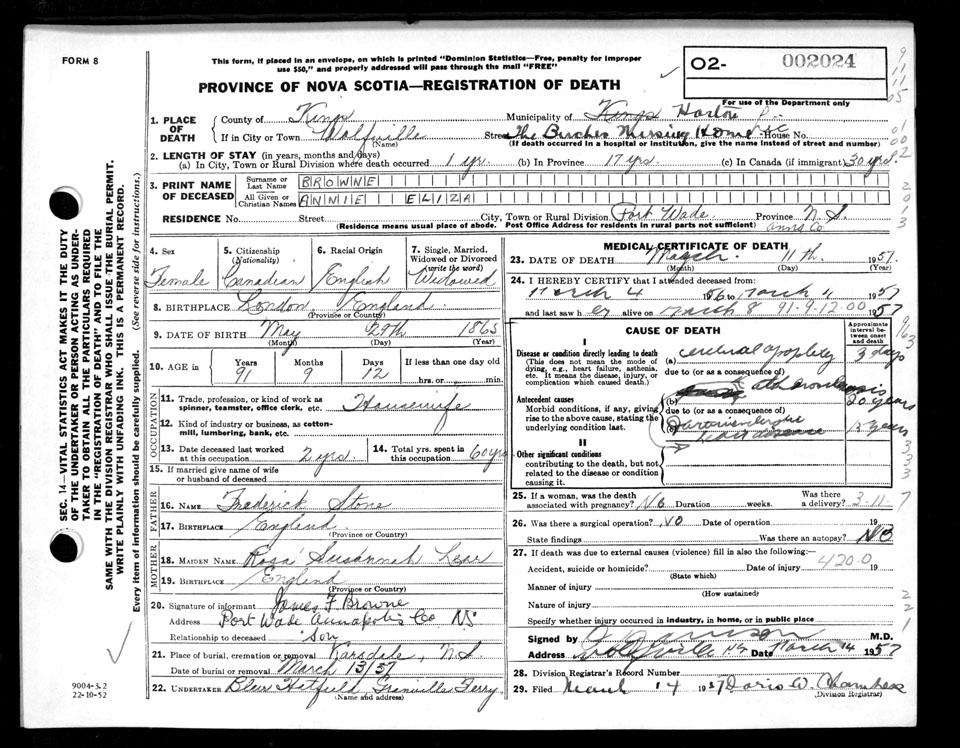 FORM 8
This form, if placed in an envelope, on which is printed "Dominion Statistics—Free, penalty for improper
use $50," and properly addressed will pass through the mail "FREE"
O2- 002024
For use of the Department only
PROVINCE OF NOVA SCOTIA—REGISTRATION OF DEATH
1. PLACE OF DEATH
County of Kings Municipality of Kings Horton
If in City or Town Wolfville (Name) Street The Birches Nursing Home House No.
(If death occurred in a hospital or institution, give the name instead of street and number)
2. LENGTH OF STAY (in years, months and days)
(a) In City, Town or Rural Division where death occurred 1 yr. (b) In Province 17 yrs. (c) In Canada (if immigrant) 30 yrs.
3. PRINT NAME OF DECEASED
Surname or Last Name BROWNE
All Given or Christian Names ANNIE ELIZA
RESIDENCE No. Street City, Town or Rural Division Port Wade Province N.S.
(Residence means usual place of abode. Post Office Address for residents in rural parts not sufficient) Anna Co
4. Sex Female
5. Citizenship (Nationality) Canadian
6. Racial Origin English
7. Single, Married, Widowed or Divorced (write the word) Widowed
8. BIRTHPLACE London, England
(Province or Country)
9. DATE OF BIRTH May 29th 1865
(Month) (Day) (Year)
10. AGE in Years 91 Months 9 Days 12 If less than one day old hrs. or min.
OCCUPATION
11. Trade, profession, or kind of work as spinner, teamster, office clerk, etc. Housewife
12. Kind of industry or business, as cotton-mill, lumbering, bank, etc.
13. Date deceased last worked at this occupation 2 yrs. 14. Total yrs. spent in this occupation 60 yrs
15. If married give name of wife or husband of deceased
FATHER
16. NAME Frederick Stone
17. BIRTHPLACE England
(Province or Country)
MOTHER
18. MAIDEN NAME Rosa Susannah Lear
19. BIRTHPLACE England
(Province or Country)
20. Signature of informant James F Browne
Address Port Wade Annapolis Co NS
Relationship to deceased Son
21. Place of burial, cremation or removal Karsdale, N.S.
Date of burial or removal March 13/57
22. UNDERTAKER Hatfield Granville Ferry
(Name and address)
MEDICAL CERTIFICATE OF DEATH
23. DATE OF DEATH March 11th 1957
(Month) (Day) (Year)
24. I HEREBY CERTIFY that I attended deceased from:
March 4 to March 11 1957
and last saw her alive on March 8 91-9-12.00 1957
CAUSE OF DEATH
Approximate interval between onset and death
I
Disease or condition directly leading to death
(This does not mean the mode of dying, e.g., heart failure, asthenia, etc. It means the disease, injury, or complication which caused death.)
(a) Cerebral apoplexy 3 days
due to (or as a consequence of)
Antecedent causes
Morbid conditions, if any, giving rise to the above cause, stating the underlying condition last.
(b) 20 years
due to (or as a consequence of)
(c) Arteriosclerotic heart disease 15 years
II
Other significant conditions
contributing to the death, but not related to the disease or condition causing it.
25. If a woman, was the death associated with pregnancy? No Duration weeks. Was there a delivery? 3-11-7
26. Was there a surgical operation? No Date of operation 19
State findings Was there an autopsy? No
27. If death was due to external causes (violence) fill in also the following:—
Accident, suicide or homicide? Date of injury 420.0 19
(State which)
Manner of injury
(How sustained)
Nature of injury
Specify whether injury occurred in industry, in home, or in public place
Signed by M.D.
Address Wolfville NS Date March 14 1957
28. Division Registrar's Record Number
29. Filed March 14 1957 Doris W. Chambers
(Division Registrar)
SEC. 14—VITAL STATISTICS ACT MAKES IT THE DUTY
OF THE UNDERTAKER OR PERSON ACTING AS UNDER-
TAKER TO OBTAIN ALL THE PARTICULARS REQUIRED
IN THE "REGISTRATION OF DEATH" AND TO FILE THE
SAME WITH THE DIVISION REGISTRAR WHO SHALL ISSUE THE BURIAL PERMIT.
WRITE PLAINLY WITH UNFADING INK. THIS IS A PERMANENT RECORD.
Every item of information should be carefully supplied. (See reverse side for instructions.)
9004-3.2
22-10-52